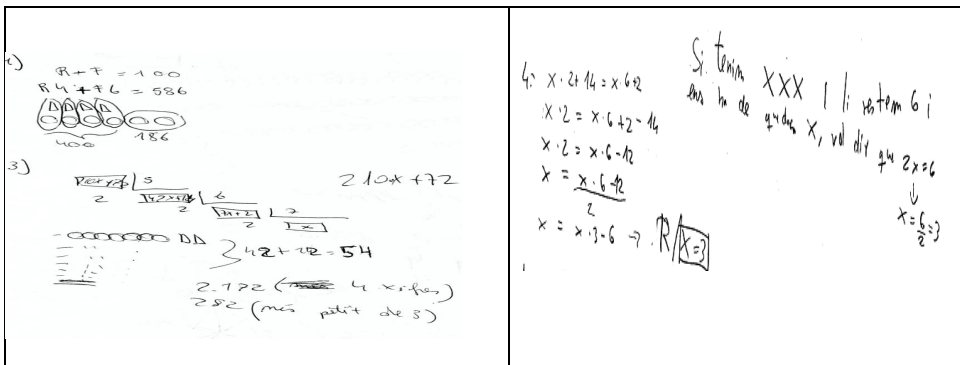 R + F = 100
R4 + F6 = 586
400
186
3)
5
2
6
2
7n+2
7
2
x
210x + 72
42 + 12 = 54
2.172 (4 xifres)
282 (més petit de 3)
4: x · 2 + 14 = x · 6 + 2
x · 2 = x · 6 + 2 - 14
x · 2 = x · 6 - 12
x = x · 6 - 12
2
x = x · 3 - 6 → R/ x = 3
Si tenim XXX i li restem 6 i
ens ha de quedar X, vol dir que 2x = 6
↓
x = 6/2 = 3